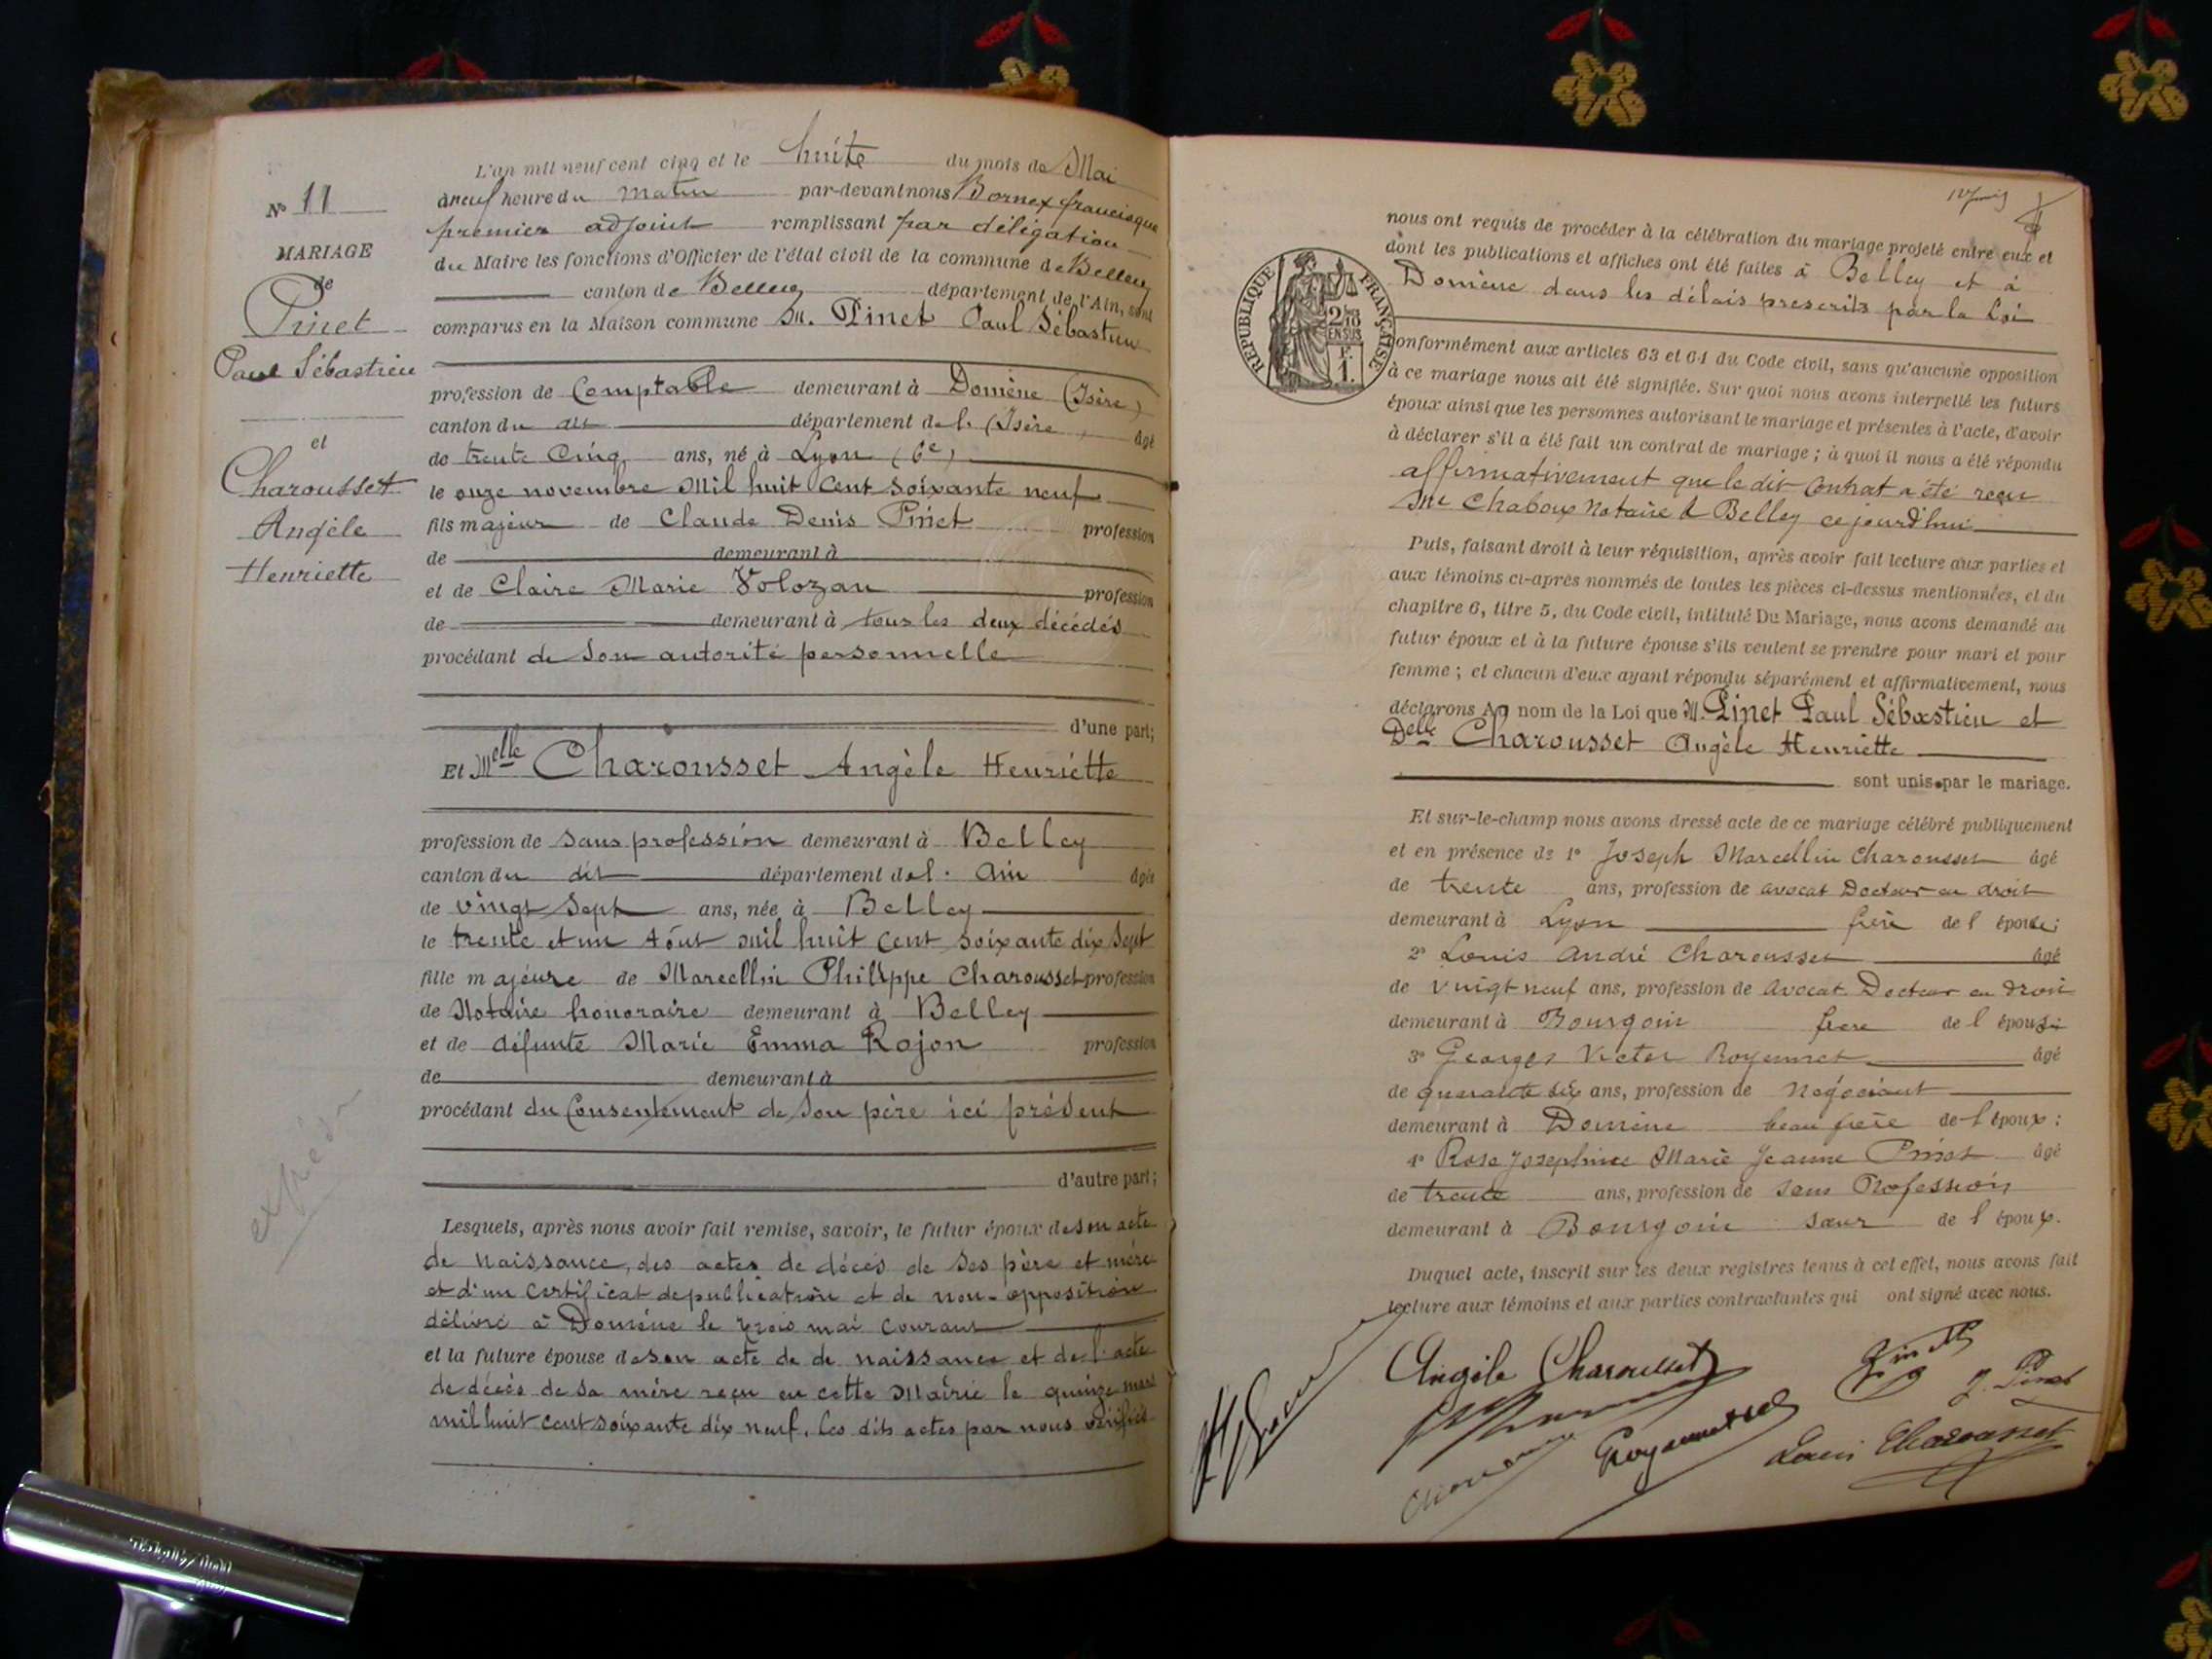 L'an mil neuf cent cinq et le huite du mois de Mai
à neuf heure du matin par-devant nous Bornex francisque
premier adjoint remplissant par délégation
du Maire les fonctions d'Officier de l'état civil de la commune de Belley
canton de Belley département de l'Ain, sont
comparus en la Maison commune M. Pinet Paul Sébastien
profession de Comptable demeurant à Domène (Isère)
canton du dit département de l' (Isère) âgé
de trente Cinq ans, né à Lyon (6e)
le onze novembre Mil huit Cent soixante neuf
fils majeur de Claude Denis Pinet profession
de demeurant à
et de Claire Marie Volozan profession
de demeurant à tous les deux décédés
procédant de Son autorité personnelle
d'une part;
Et Melle Charousset Angèle Henriette
profession de sans profession demeurant à Belley
canton du dit département de l' Ain âgée
de vingt Sept ans, née à Belley
le trente et un Aôut mil huit cent soixante dix Sept
fille majeure de Marcellin Philippe Charousset profession
de Notaire honoraire demeurant à Belley
et de défunte Marie Emma Rojon profession
de demeurant à
procédant du Consentement de Son père ici présent
d'autre part;
Lesquels, après nous avoir fait remise, savoir, le futur époux de son acte
de naissance, des actes de décès de Ses père et mère
et d'un certificat de publication et de non-opposition
délivré à Domène le trois mai courant
et la future épouse de son acte de de naissance et de l'acte
de décès de sa mère reçu en cette Mairie le quinze mars
mil huit cent soixante dix neuf, les dits actes par nous vérifiés
N° 11
MARIAGE
de
Pinet
Paul Sébastien
et
Charousset
Angèle
Henriette
expédn
nous ont requis de procéder à la célébration du mariage projeté entre eux et
dont les publications et affiches ont été faites à Belley et à
Domène dans les délais prescrits par la Loi
RÉPUBLIQUE FRANÇAISE
2/10
EN SUS
1 F.
conformément aux articles 63 et 64 du Code civil, sans qu'aucune opposition
à ce mariage nous ait été signifiée. Sur quoi nous avons interpellé les futurs
époux ainsi que les personnes autorisant le mariage et présentes à l'acte, d'avoir
à déclarer s'il a été fait un contrat de mariage ; à quoi il nous a été répondu
affirmativement que le dit Contrat a été reçu
Me Chaboux Notaire à Belley ce jourd'hui
Puis, faisant droit à leur réquisition, après avoir fait lecture aux parties et
aux témoins ci-après nommés de toutes les pièces ci-dessus mentionnées, et du
chapitre 6, titre 5, du Code civil, intitulé Du Mariage, nous avons demandé au
futur époux et à la future épouse s'ils veulent se prendre pour mari et pour
femme ; et chacun d'eux ayant répondu séparément et affirmativement, nous
déclarons Au nom de la Loi que M. Pinet Paul Sébastien et
Delle Charousset Angèle Henriette
sont unis par le mariage.
Et sur-le-champ nous avons dressé acte de ce mariage célébré publiquement
et en présence de 1° Joseph Marcellin Charousset âgé
de trente ans, profession de avocat Docteur en droit
demeurant à Lyon frère de l' épouse;
2° Louis André Charousset âgé
de vingt neuf ans, profession de Avocat Docteur en droit
demeurant à Bourgoin frère de l' épouse
3° Georges Victor Royannet âgé
de quarante six ans, profession de Négociant
demeurant à Domène beau frère de l' époux :
4° Rose Josephine Marie Jeanne Pinet âgé
de trente ans, profession de sans Profession
demeurant à Bourgoin sœur de l' époux.
Duquel acte, inscrit sur les deux registres tenus à cet effet, nous avons fait
lecture aux témoins et aux parties contractantes qui ont signé avec nous.
Angèle Charousset
J. Pinet
Louis Charousset